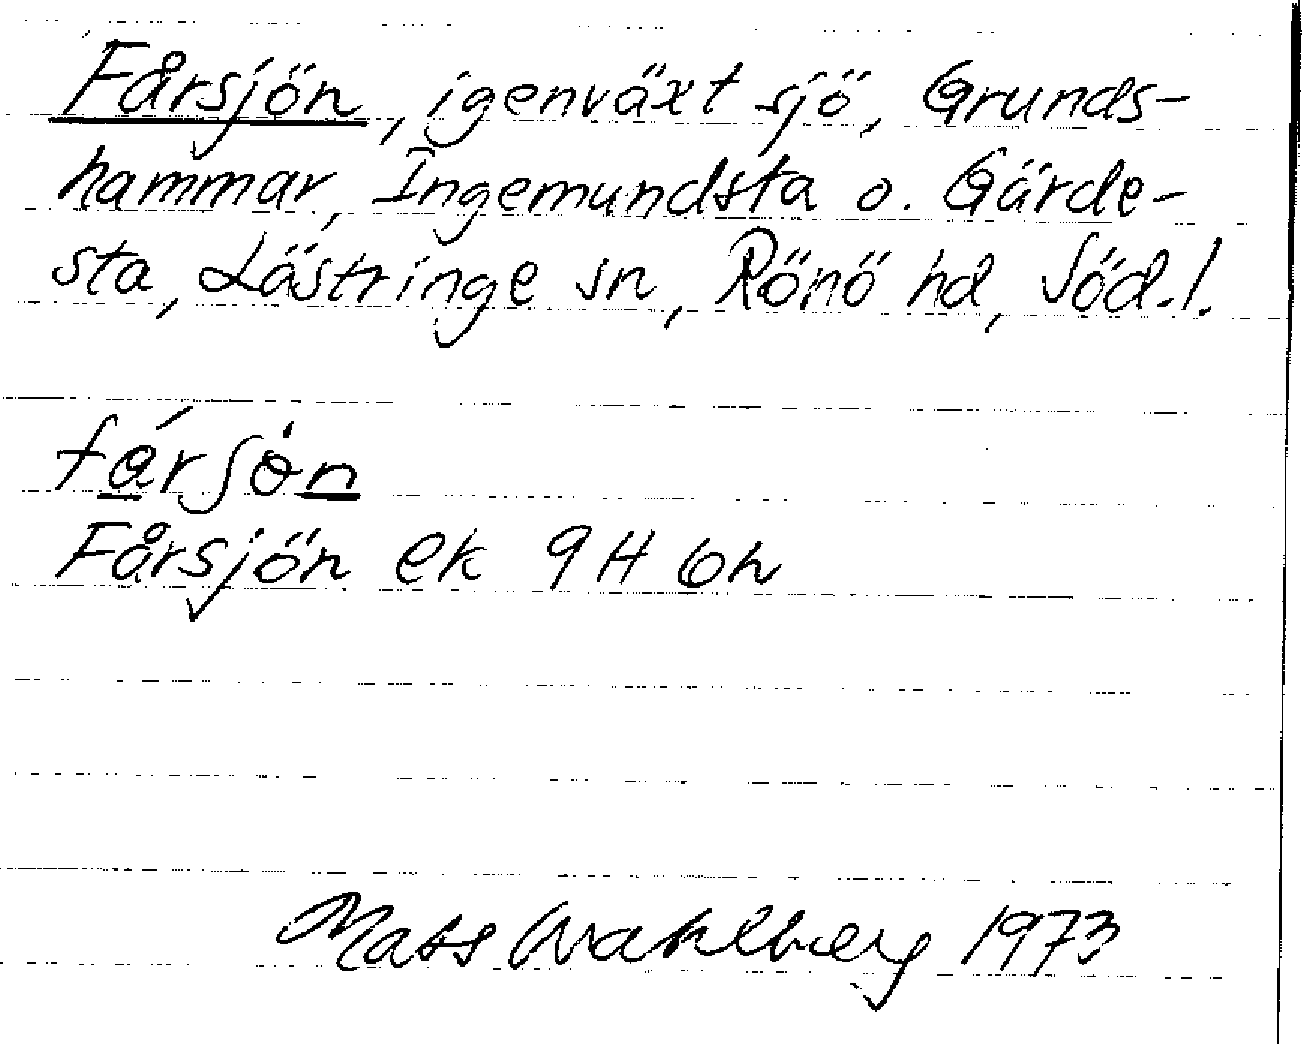 Fårsjön, igenväxt sjö, Grunds-
hammar, Ingemundsta o. Gärde-
sta, Lästringe sn, Rönö hd, Söd.l.
fárſȯn
Fårsjön ek 9H 6h
Mats Wahlberg 1973